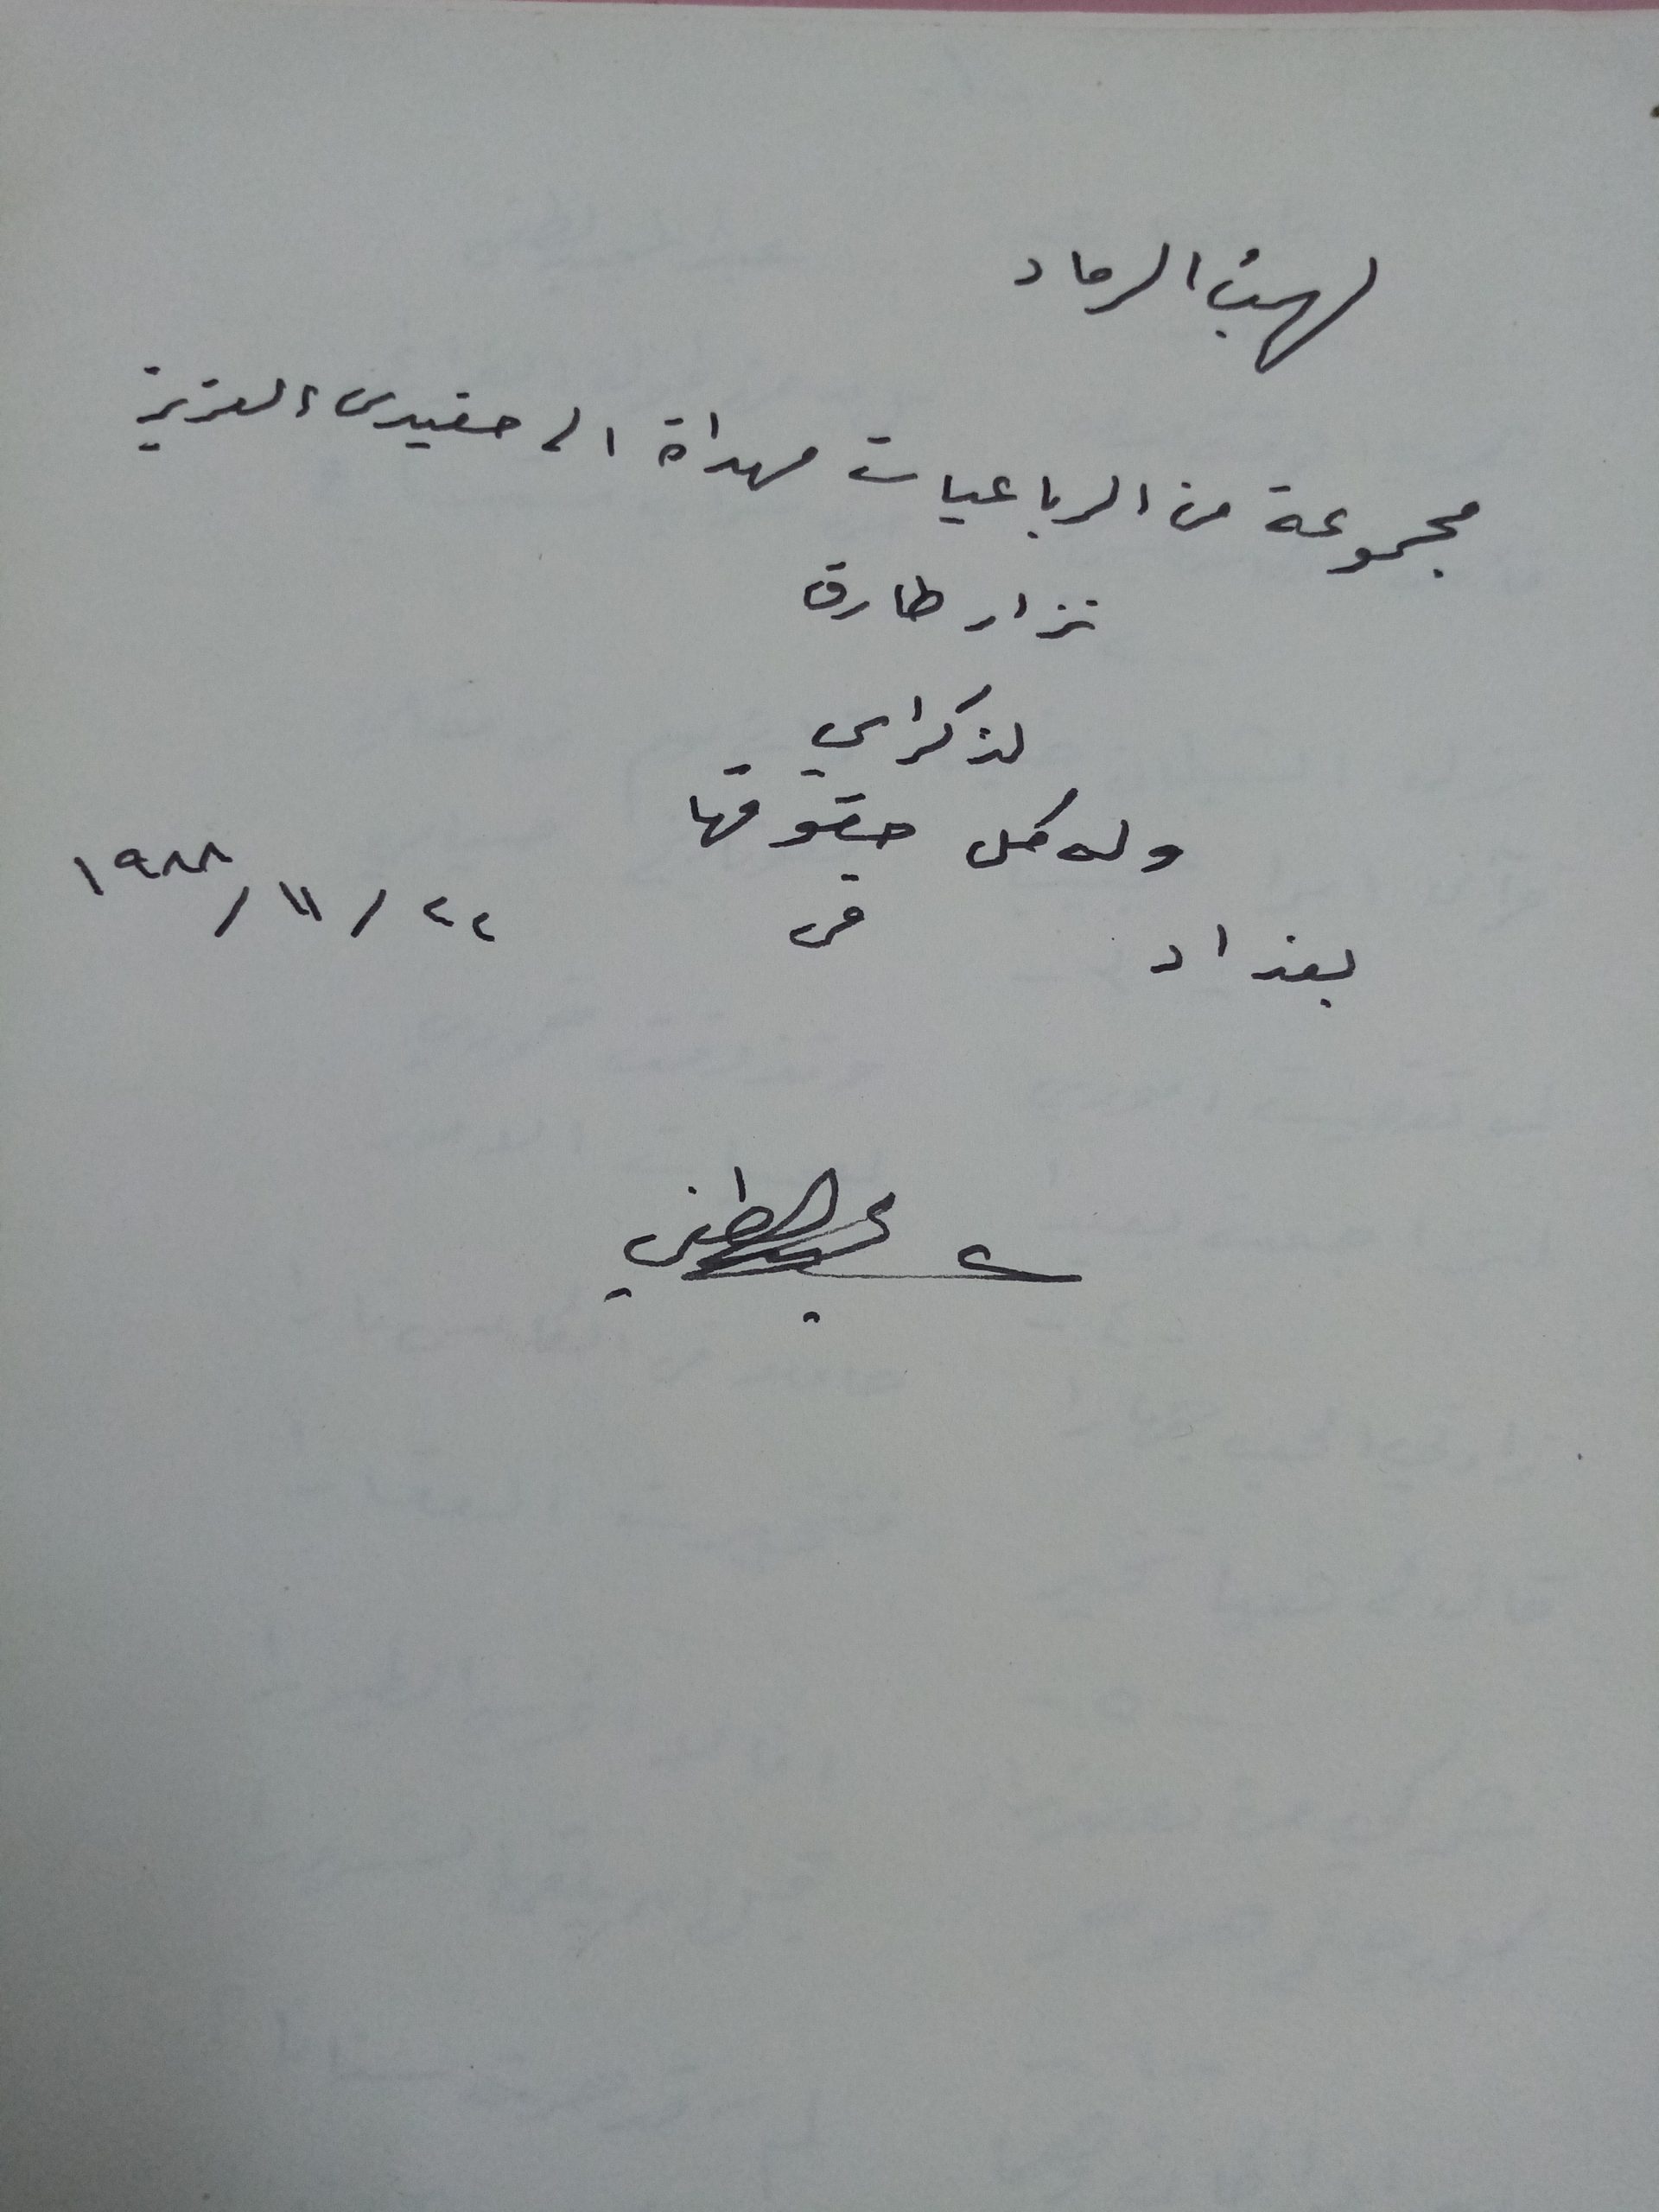 لهبُ الرماد
مجموعة من الرباعيات مهداة الى حفيدى العزيز
نزار طارق
لذكراي
وله كل حقوقها
بغداد في ٢٢ / ١١ / ١٩٨٨